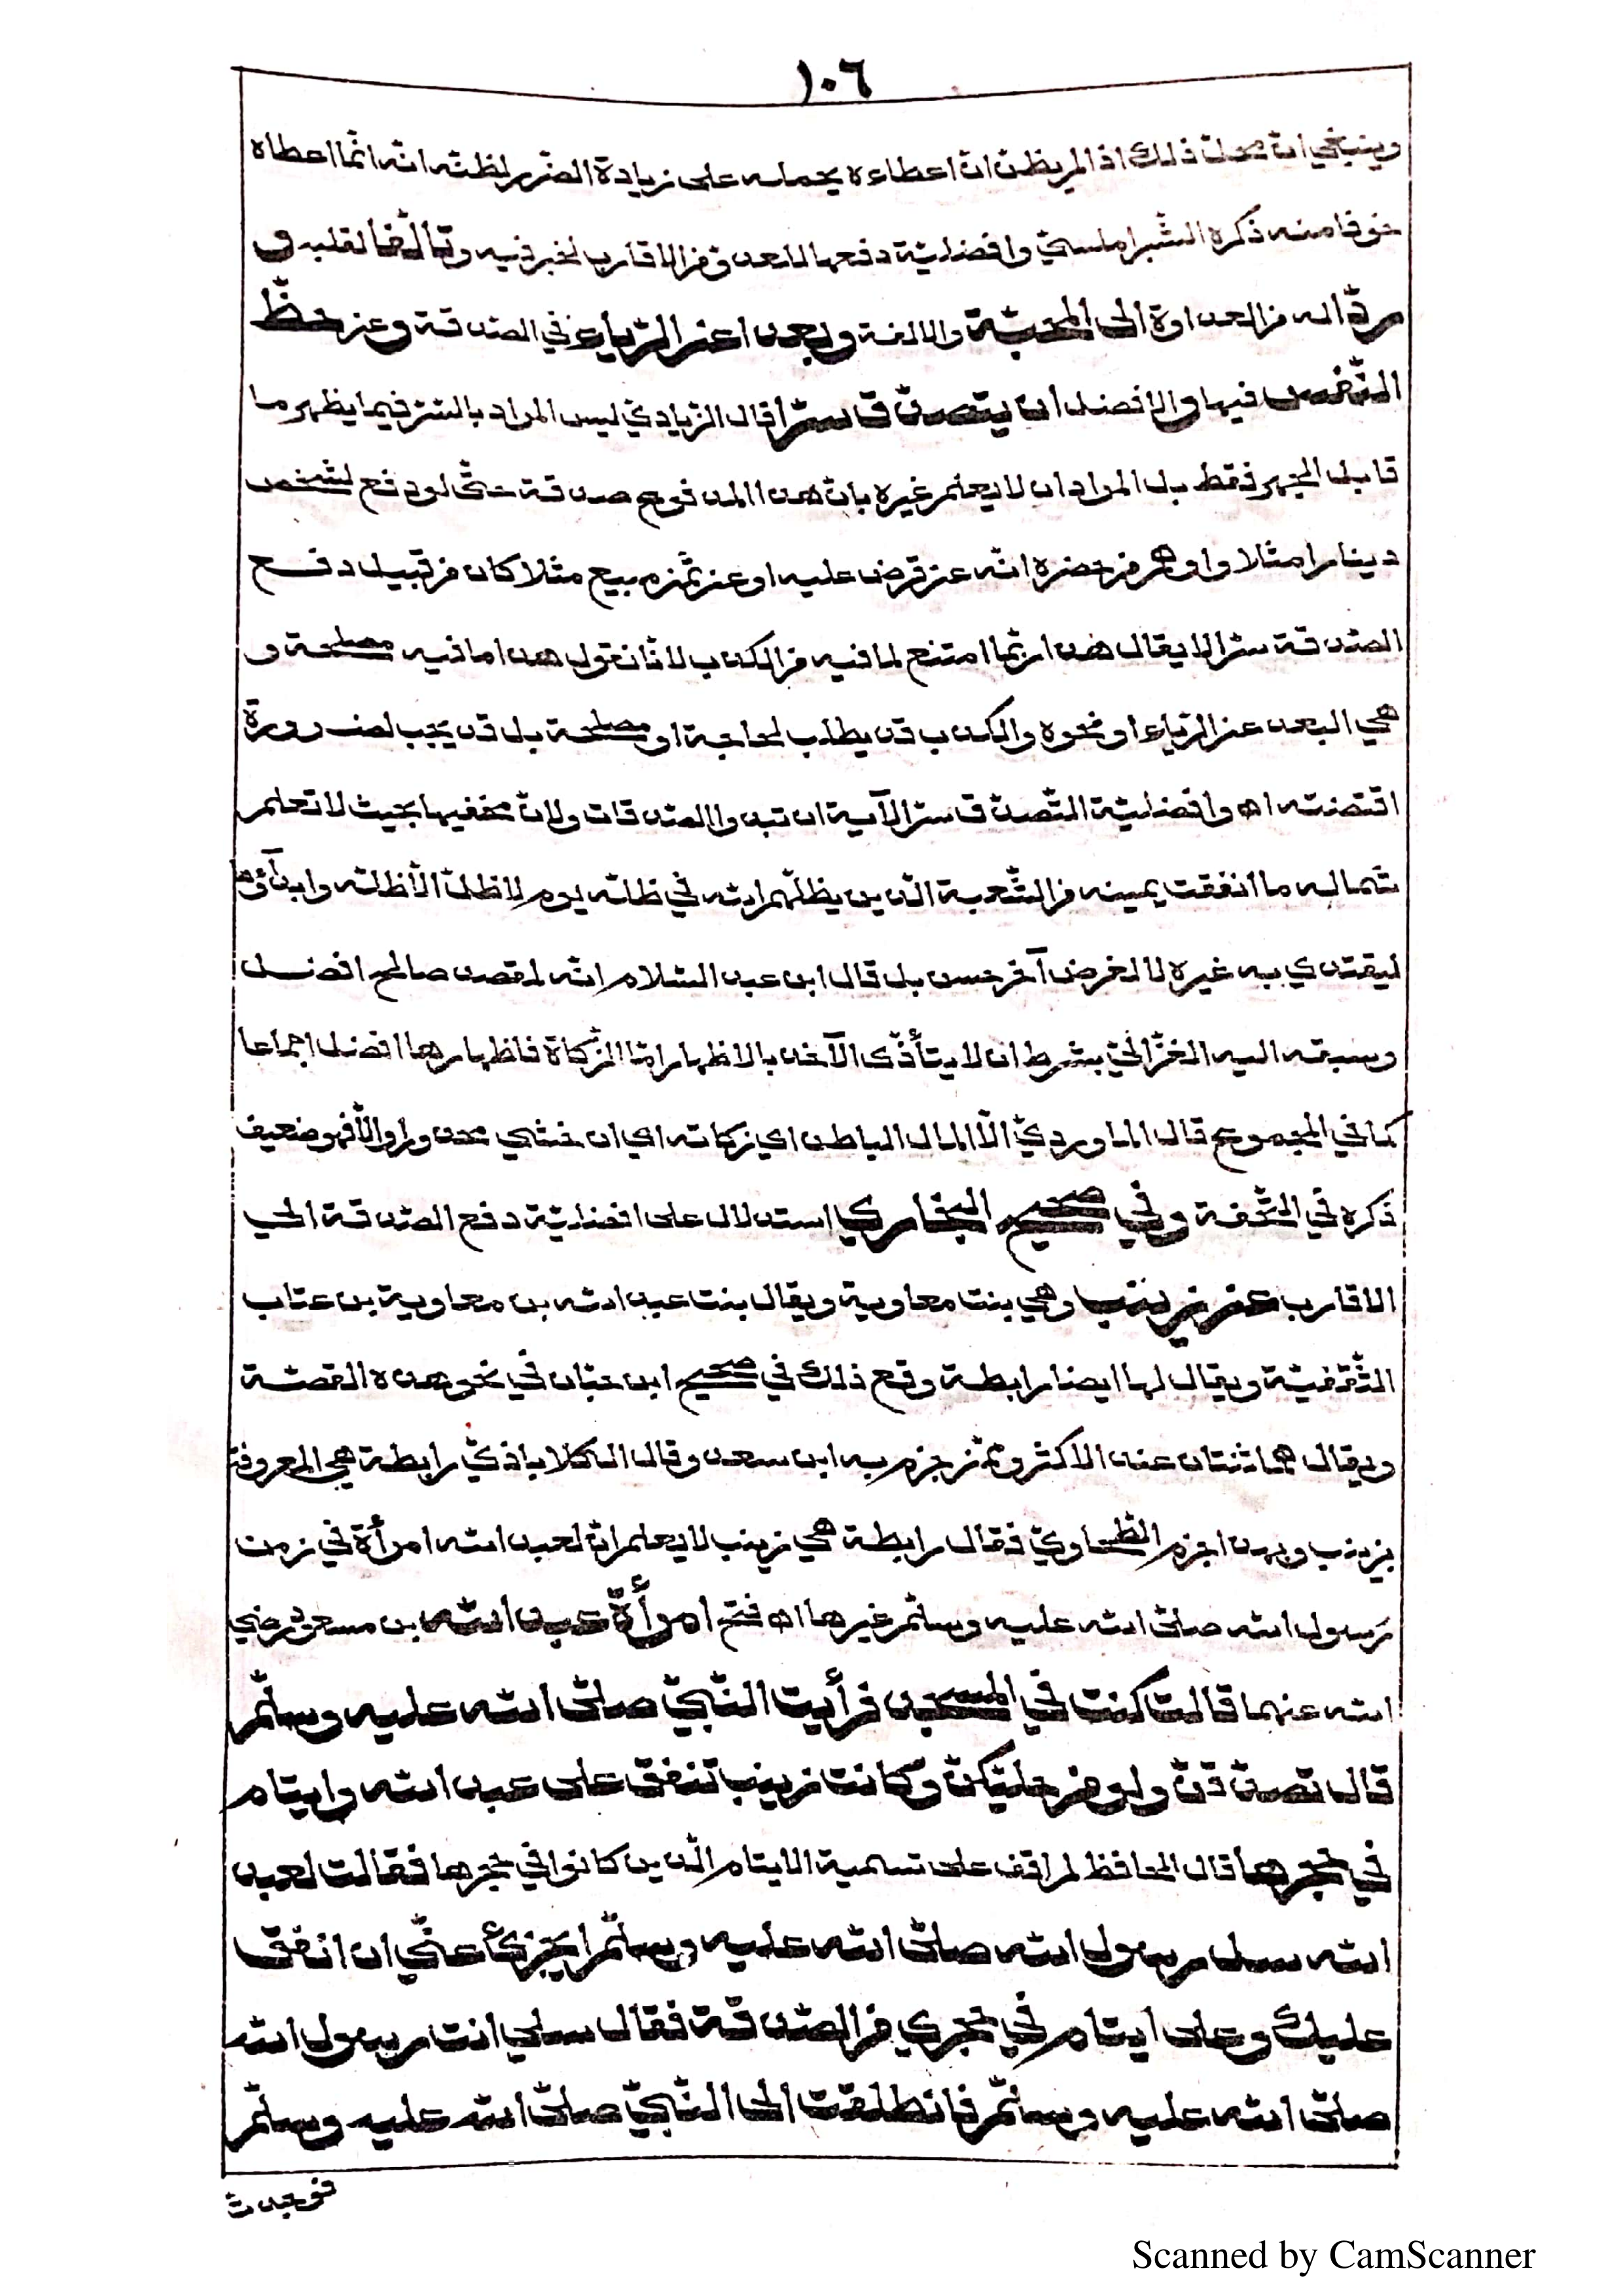 ١٠٦
وينبغي انّ محلّ ذلك اذا لم يظنّ انّ اعطاءه يحمله على زيادة الضّرر لظنّه انّه انّما اعطاه
خوفا منه ذكره الشّبراملسيّ وافضليّة دفعها للعدوّ من الاقارب لخبر فيه وتألّفا لقلبه و
مردّا له من العداوة الى المحبّة والالفة وبعدا عن الرّياء في الصّدقة وعن حظّ
النّفس فيها والافضل ان يتصدّق سرّا قال الزّيادي ليس المراد بالسّرّ فيما يظهر ما
قابل الجهر فقط بل المراد ان لا يعلم غيره بانّ هذا المدفوع صدقة حتّى لو دفع لشخص
دينارا مثلا واوهم من حضره انّه عن قرض عليه او عن ثمن مبيع مثلا كان من قبيل دفع
الصّدقة سرّا لا يقال هذا ربّما امتنع لما فيه من الكذب لانّا نقول هذا ما فيه مصلحة و
هي البعد عن الرّياء او نحوه والكذب قد يطلب لحاجة او مصلحة بل قد يجب لضرورة
اقتضته اه وافضليّة التّصدّق سرّا لآية ان تبدوا الصّدقات ولانّ مخفيها بحيث لا تعلم
شماله ما انفقت يمينه من السّبعة الّذين يظلّهم الله في ظلّه يوم لا ظلّ الّا ظلّه وابدآؤها
ليقتدي به غيره لا لغرض آخر حسن بل قال ابن عبد السّلام انّه لمقصد صالح افضل
وسبقه اليه الغزّاليّ بشرط ان لا يتأذّى الآخذ بالاظهار امّا الزّكاة فاظهارها افضل اجماعا
كما في المجموع قال الماورديّ الّا المال الباطن اي زكاته اي ان خشي محذورا والّا فهو ضعيف
ذكره في التّحفة وفي صحيح البخاري استدلال على افضليّة دفع الصّدقة الى
الاقارب عن زينب وهي بنت معاوية ويقال بنت عبد الله بن معاوية بن عتاب
الثّقفيّة ويقال لها ايضا رابطة وقع ذلك في صحيح ابن حبّان في نحو هذه القصّة
ويقال هما ثنتان عند الاكثر وممّن جزم به ابن سعد وقال الكلاباذيّ رابطة هي المعروفة
بزينب وبهذا جزم الطّحاويّ فقال رابطة هي زينب لا يعلم انّ لعبد الله امرأة في زمن
رسول الله صلّى الله عليه وسلّم غيرها اه فتح امرأة عبد الله بن مسعود رضي
الله عنهما قالت كنت في المسجد فرأيت النّبيّ صلّى الله عليه وسلّم
قال تصدّقن ولو من حليّكنّ وكانت زينب تنفق على عبد الله وايتام
في حجرها قال الحافظ لم اقف على تسمية الايتام الّذين كانوا في حجرها فقالت لعبد
الله سل رسول الله صلّى الله عليه وسلّم ايجزئ عنّي ان انفق
عليك وعلى ايتام في حجري من الصّدقة فقال سلي انت رسول الله
صلّى الله عليه وسلّم فانطلقت الى النّبيّ صلّى الله عليه وسلّم
فوجدت
Scanned by CamScanner